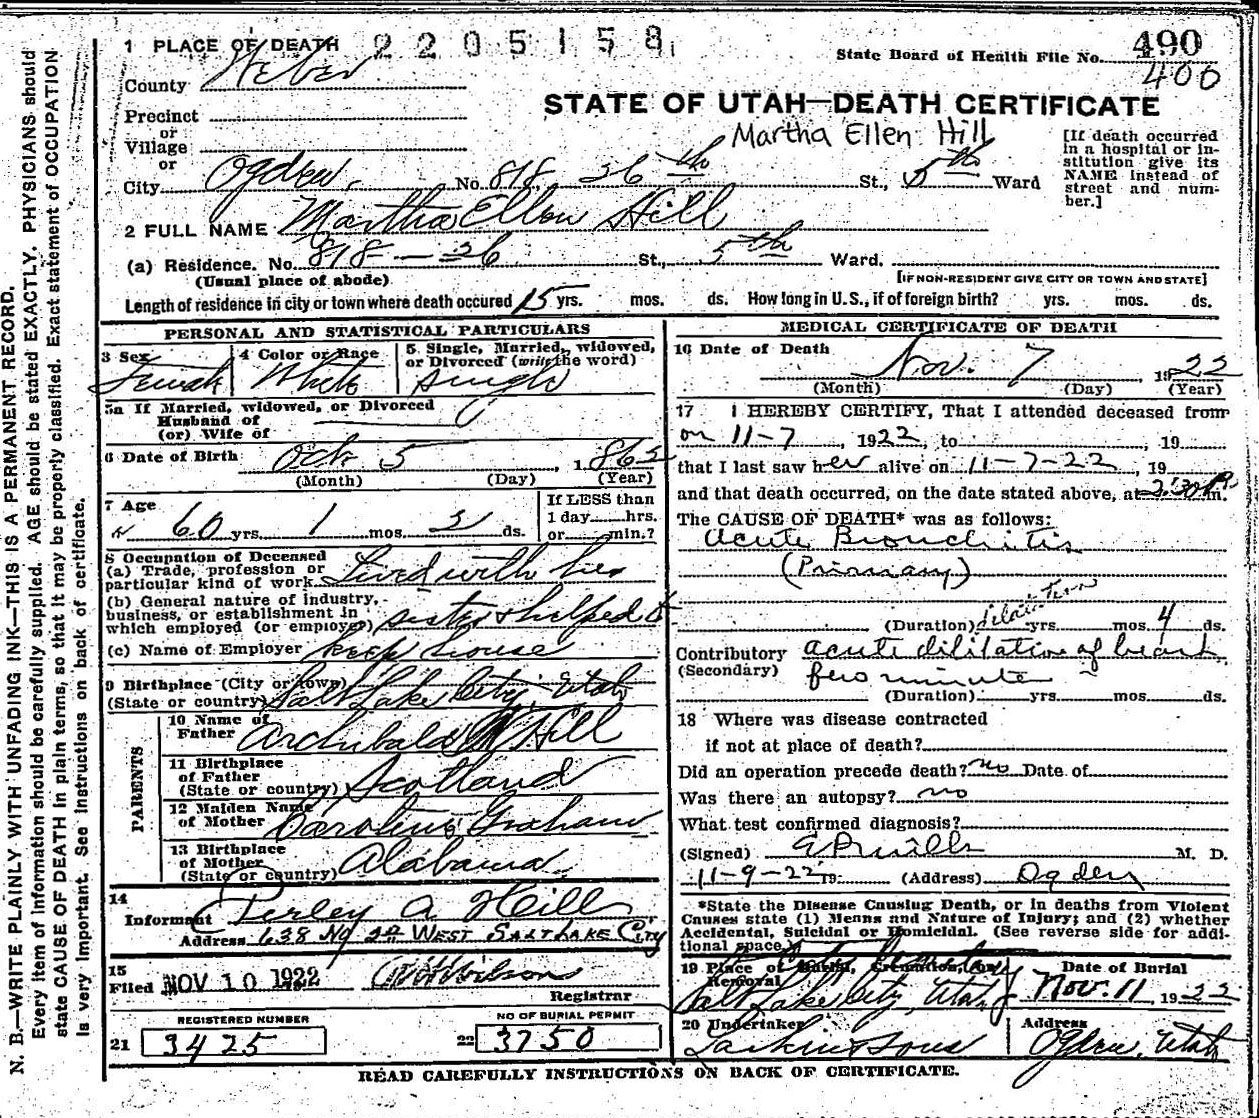 1 PLACE OF DEATH 2205158
State Board of Health File No. 490
400
County Weber
STATE OF UTAH—DEATH CERTIFICATE
Precinct
or
Village
or
Martha Ellen Hill
City Ogden, No. 818 26th St., 5th Ward
[If death occurred in a hospital or institution give its NAME instead of street and number.]
2 FULL NAME Martha Ellen Hill
(a) Residence. No. 818 — 26 St., 5th Ward.
(Usual place of abode)
[IF NON-RESIDENT GIVE CITY OR TOWN AND STATE]
Length of residence in city or town where death occured 15 yrs. mos. ds. How long in U.S., if of foreign birth? yrs. mos. ds.
PERSONAL AND STATISTICAL PARTICULARS
3 Sex Female
4 Color or Race White
5 Single, Married, widowed, or Divorced (write the word) single
5a If Married, widowed, or Divorced
Husband of
(or) Wife of
6 Date of Birth Oct 5, 1865
(Month) (Day) (Year)
7 Age 60 yrs. 1 mos. ds.
If LESS than
1 day hrs.
or min.?
8 Occupation of Deceased
(a) Trade, profession or
particular kind of work Lived with her
(b) General nature of industry,
business, or establishment in
which employed (or employer) sister & helped to
(c) Name of Employer keep house
9 Birthplace (City or town)
(State or country) Salt Lake City, Utah
PARENTS
10 Name of
Father Archibald N Hill
11 Birthplace
of Father
(State or country) Scotland
12 Maiden Name
of Mother Caroline Graham
13 Birthplace
of Mother
(State or country) Alabama
14
Informant Perley A Hill
Address 638 No 24 WEST SALT LAKE CITY
15
Filed NOV 10 1922 Wilson
Registrar
REGISTERED NUMBER
21 3425
NO OF BURIAL PERMIT
22 3750
MEDICAL CERTIFICATE OF DEATH
16 Date of Death Nov. 7, 1922
(Month) (Day) (Year)
17 I HEREBY CERTIFY, That I attended deceased from
on 11-7, 1922, to , 19
that I last saw her alive on 11-7-22, 19
and that death occurred, on the date stated above, at 2:30 P.m.
The CAUSE OF DEATH* was as follows:
Acute Bronchitis
(Primary)
(Duration) yrs. mos. 4 ds.
Contributory acute dilitation of heart
(Secondary) few minutes
(Duration) yrs. mos. ds.
18 Where was disease contracted
if not at place of death?
Did an operation precede death? no Date of
Was there an autopsy? no
What test confirmed diagnosis?
(Signed) E P Mills M. D.
11-9-22 19 (Address) Ogden
*State the Disease Causing Death, or in deaths from Violent
Causes state (1) Menns and Nature of Injury; and (2) whether
Accidental, Suicidal or Homicidal. (See reverse side for addi-
tional space.)
19 Place of Burial, Cremation, or
Removal City Cemetery
Salt Lake City, Utah
Date of Burial
Nov. 11, 1922
20 Undertaker
Larkin & Sons
Address
Ogden, Utah
READ CAREFULLY INSTRUCTIONS ON BACK OF CERTIFICATE.
N. B.—WRITE PLAINLY WITH UNFADING INK—THIS IS A PERMANENT RECORD.
Every item of information should be carefully supplied. AGE should be stated EXACTLY. PHYSICIANS should
state CAUSE OF DEATH in plain terms, so that it may be properly classified. Exact statement of OCCUPATION
is very Important. See instructions on back of certificate.